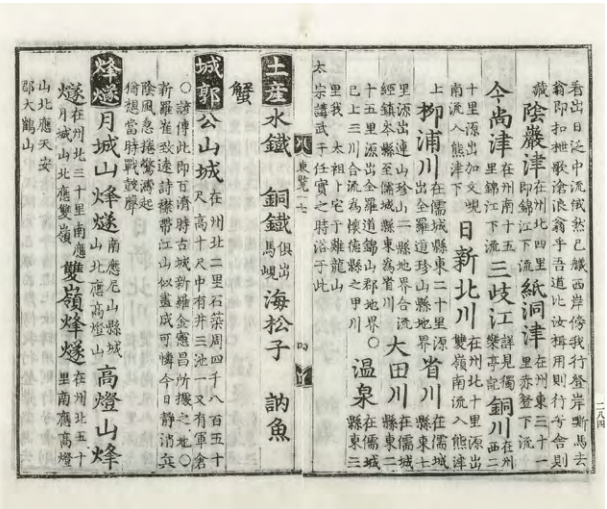 看出日泛中流俄然已艤西岸傍我行登岸嘶馬去
翁即扣枻歌滄浪翁乎吾道比汝楫用則行兮舍則
藏 陰巖津 在州北四里即錦江下流 紙洞津 在州東三十一里赤登下流
今尙津 在州南十五里錦江下流 三歧江 詳見獨樂亭記 銅川 在州西二
十里源出加文峴南流入熊津下 日新北川 在州北十里源出雙嶺南流入熊津
上 柳浦川 在儒城縣東二十里源出全羅道珍山縣地界 省川 在儒城縣東七
里源出連山珍山二縣地界合流經鎭岑縣至儒城縣東爲省川 大田川 在儒城縣東二
十五里源出全羅道錦山郡地界○已上三川合流爲懷德縣之甲川 溫泉 在儒城縣東三
里我 太祖卜宅于雞龍山
太宗講武于任實之時浴于此
東覽十七
土産 水鐵 銅鐵 俱出馬峴 海松子 訥魚
蟹
城郭 公山城 在州北二里石築周四千八百五十尺高十尺中有井三池一又有軍倉
○諺傳此即百濟時古城新羅金憲昌所據之地○
新羅崔致遠詩襟帶江山似畫成可憐今日靜消兵
陰風忽捲驚濤起
猶想當時戰鼓聲
烽燧 月城山烽燧 南應尼山縣城山北應高燈山 高燈山烽
燧 在州北三十里南應月城山北應雙嶺 雙嶺烽燧 在州北五十里南應高燈
山北應天安
郡大鶴山
二八四